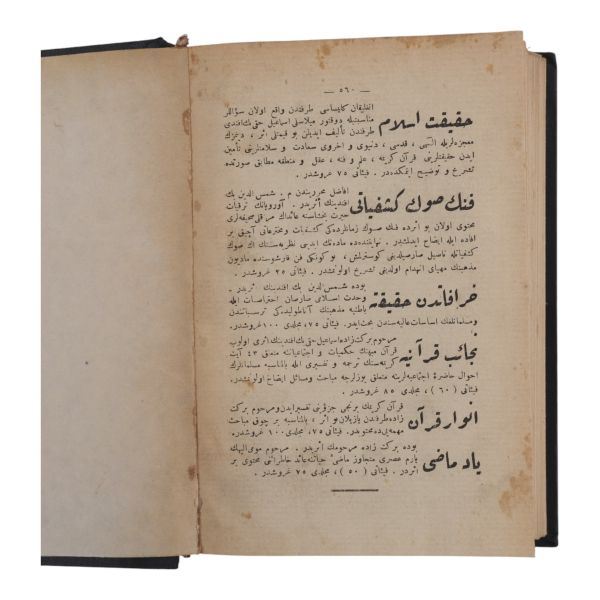 — ٥٦٠ —
حقیقت اسلام
انغلیقان کلیساسی طرفندن واقع اولان سؤاللر
مناسبتیله دوقتور میلاسلی اسماعیل حقی بك افندی
طرفندن تألیف ایدیلن بو قیمتلی اثر ،
معجزه لریله الهی ، قدسی ، دنیوی و اخروی سعادت و سلامتلرینی تأمین
ایدن حقیقتلرینی قرآن کریمه ، علم و فنه ، عقل و منطقه مطابق صورتده
تشریح و توضیح ایتمکده در . فیئاتی ٧٥ غروشدر .
فنك صوك کشفیاتی
افاضل محرریندن م . شمس الدین بك
افندینك اثریدر . آوروپانك ترقیات
حیرت بخشاسنه عائد مراقلی صحیفه لری
محتوی اولان بو اثرده فنك صوك زمانلرده کی کشفیات و مخترعاتی آچیق بر
افاده ایله ایضاح ایدلشدر . نهایتنده ده ماده نك ابدیتی نظریه سنك اك صوك
کشفیاتله ناصیل صارصیلدیغی کوسترلمش ، بوکونکی فن قارشوسنده مادیون
مذهبنك مهیای انهدام اولدیغی تشریح اولونمشدر . فیئاتی ٣٥ غروشدر .
خرافاتدن حقیقته
بوده شمس الدین بك افندینك اثریدر .
وحدت اسلامی صارصان احتراصات ایله
باطنیه مذهبنك آناطولیده کی ترسباتندن
و مسلمانلغك اساسات عالیه سندن بحث ایدر . فیئاتی ٧٥، مجلدی ١٠٠ غروشدر .
نجائب قرآنیه
مرحوم برکت زاده اسماعیل حقی بك افندینك اثری اولوب
قرآن مبینك حکمیات و اجتماعیاتنه متعلق ٤٢ آیت
کریمه سنك ترجمه و تفسیری ایله بالمناسبه مسلمانلرك
احوال حاضرۀ اجتماعیه لرینه متعلق یوزلرجه مباحث و مسائل ایضاح اولونمشدر .
فیئاتی ( ٦٠ ) ، مجلدی ٨٥ غروشدر .
انوار قرآن
قرآن کریمك برنجی جزؤینی تفسیر ایدن و مرحوم برکت
زاده طرفندن یازیلان بو اثر ، بالمناسبه بر چوق مباحث
مهمه یی ده محتویدر . فیئاتی ٧٥، مجلدی ١٠٠ غروشدر .
یاد ماضی
بوده برکت زاده مرحومك اثریدر . مرحوم مومی الیهك
یارم عصری متجاوز ماضئ حیاتنه عائد خاطراتنی محتوی بر
اثردر . فیئاتی ( ٥٠ ) ، مجلدی ٧٥ غروشدر .